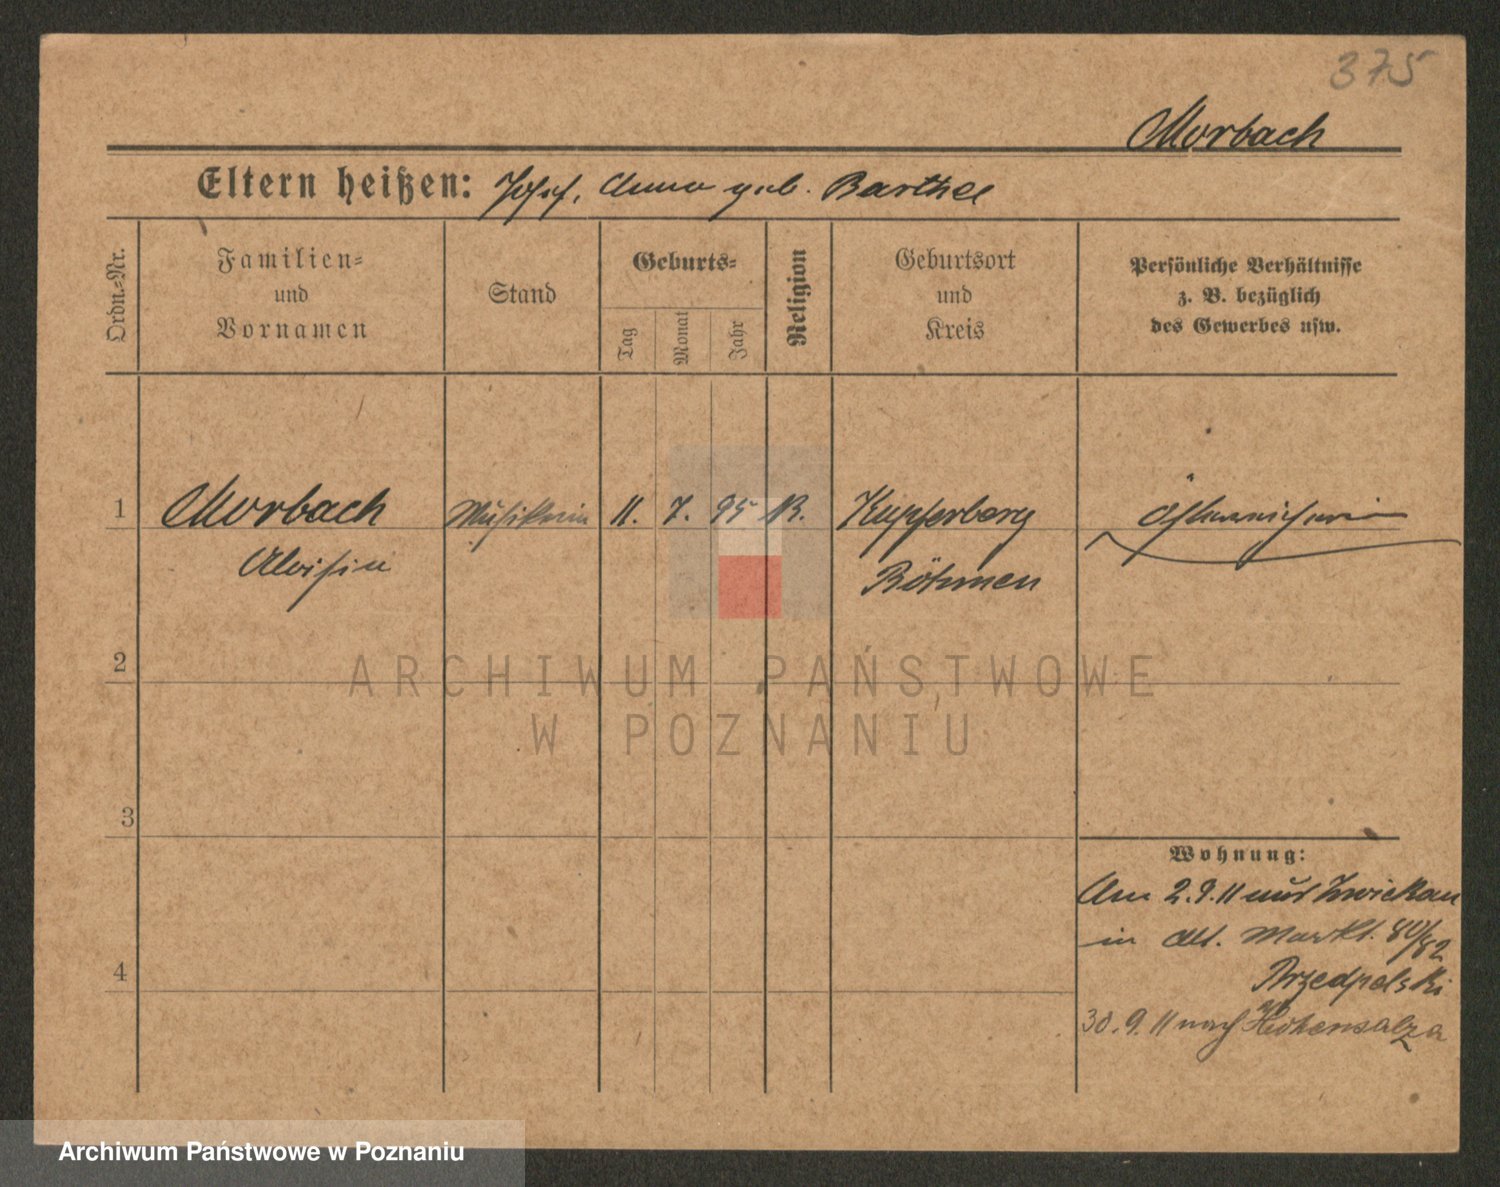 375
Morbach
Eltern heißen: Josef, Anna geb. Barthel
Ordn.-Nr.
Familien-
und
Vornamen
Stand
Geburts-
Tag
Monat
Jahr
Religion
Geburtsort
und
Kreis
Persönliche Verhältnisse
z. B. bezüglich
des Gewerbes usw.
1 Morbach Musikerin 11. 7. 95 K. Kupferberg Österreicherin
Aloisia Böhmen
2
ARCHIWUM PAŃSTWOWE
W POZNANIU
3
Wohnung:
Am 2.9.11 aus Zwickau
in Alt. Markt. 80/82
Przedpelski
4
30.9.11 nach Hohensalza
ab
Archiwum Państwowe w Poznaniu